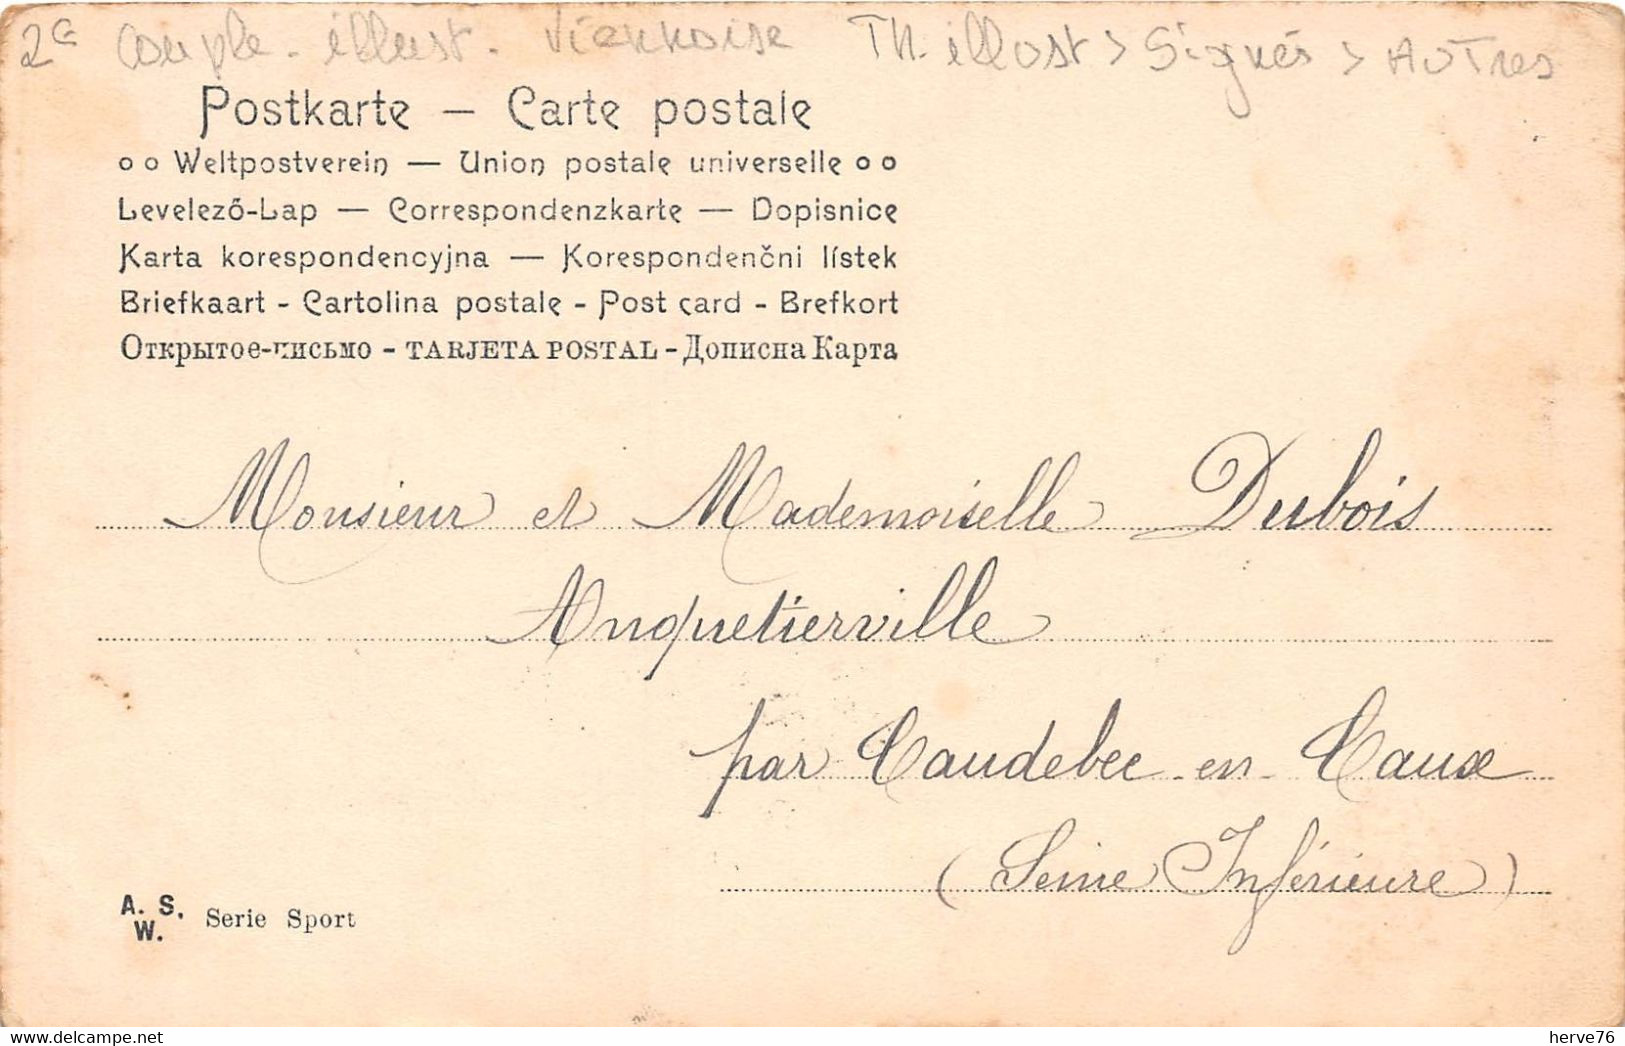 2€ couple - illust. viennoise Th. illust > Signés > AuTres
Postkarte — Carte postale
o o Weltpostverein — Union postale universelle o o
Levelező-Lap — Correspondenzkarte — Dopisnice
Karta korespondencyjna — Korespondenční lístek
Briefkaart - Cartolina postale - Post card - Brefkort
Открытое-письмо - TARJETA POSTAL - Дописна Карта
Monsieur et Mademoiselle Dubois
Anquetierville
par Caudebec-en-Caux
(Seine Inférieure)
A. S.
W. Serie Sport
www.delcampe.net
herve76